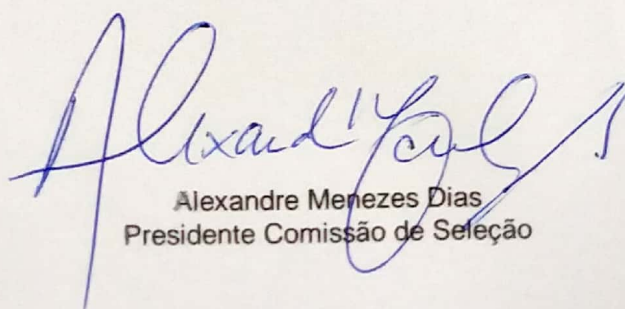 Alexandre Menezes Dias
Presidente Comissão de Seleção